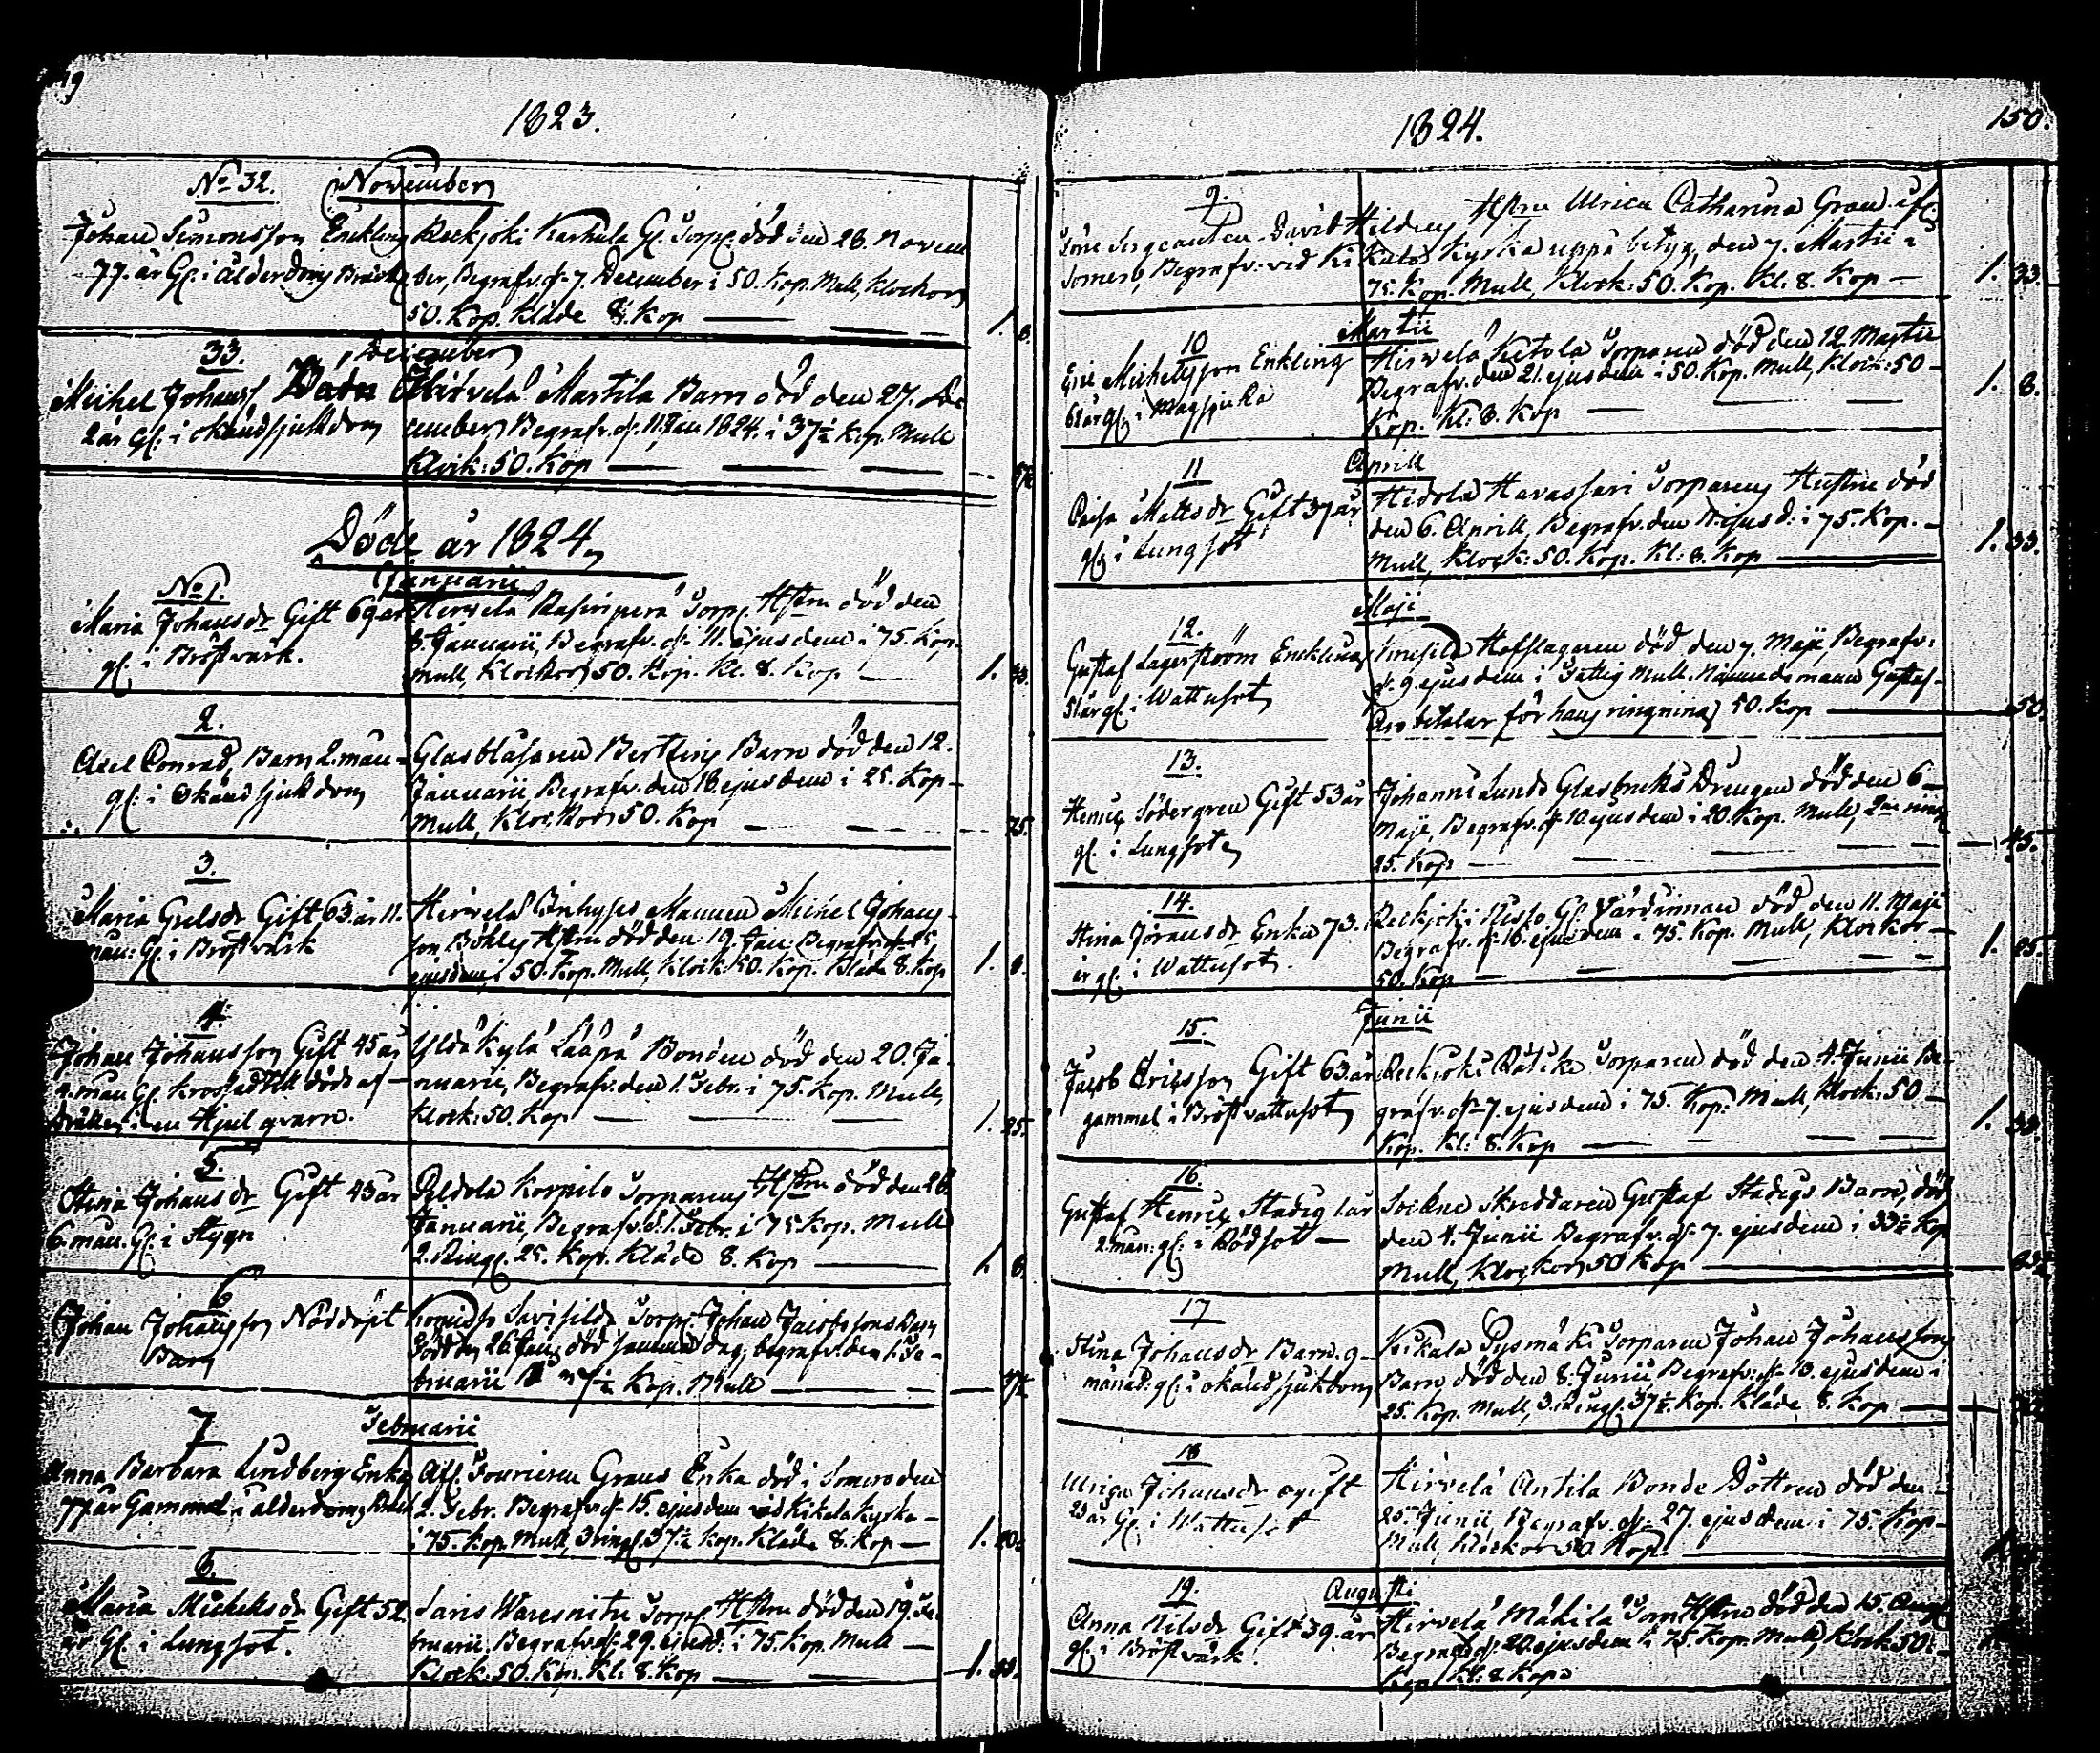 1823.
No 32. November
Johan Simonsson Enkling Reckjoki Karhula Gl. Torp. död den 28. Novem
77. år Gl. i ålderdoms Bräck ber, Begrafv. d. 7. December i 50. Kop. Mull, Klockor
50. Kop. Kläde 8. Kop 1. 8.
33. December
Michel Johanss Barn Hirvelä Martila Barn död den 27. De
2 år Gl. i okänd sjukdom cember Begrafv. d. 11. Jan 1824. i 37½ Kop. Mull
Klock: 50. Kop
Döde år 1824
Januarii
No 1.
Maria Johansdr Gift 69 år Hirvelä Torp. Hstru död den
gl. i Bröstvärk. 3. Januarii, Begrafv. d. 11. ejusdem i 75. Kop.
mull, Klockor 50. Kop. Kl. 8. Kop 1. 33.
2.
Axel Conrad, Barn 2. mån Glasblåsaren Bertlings Barn död den 12.
gl: i okänd sjukdom Januarii, Begrafv. den 18. ejusdem i 25. Kop
Mull, Klockor 50. Kop 75.
3.
Maria Grelsdr Gift 63. år 11. Hirvelä Mannen Michel Johans
mån: Gl. i Bröstvärk son Böhles Hstru död den 19. Jan: Begrafv. d. 25
ejusdem i 50. Kop. Mull, Klock: 50. Kop. Kläde 8. Kop 1. 8.
4.
Johan Johansson Gift 45 år Yldäkylä Lääpä Bonden död den 20. Ja
4. mån Gl. Krossad till döds af nuarii, Begrafv. den 1. Febr. i 75. Kop. Mull,
i en Hjul qvarn. Klock: 50. Kop 1. 25.
5.
Stina Johansdr Gift 43 år Pildola Korpilo Torparens Hstru död den 28.
6. mån. Gl. i Stygn Januarii, Begrafv. d. 1. Febr. i 75 Kop. Mull
2. Ringl. 25. Kop. Kläde 8. Kop 1. 8.
6
Johan Johansson Nöddöpt Savisilda Torp. Johan Jacobssons Barn
Barn född den 26. Jan, död samma dag, begrafv. den 1. Fe-
bruarii Kop. Mull
7 Februarii
Anna Barbara Lindberg Enka Afl. Graus Enka död i Somero den
77 år Gammal i ålderdoms 2. Febr. Begrafv. d. 15. ejusdem vid Kikala Kyrka
i 75. Kop. Mull, 3 ringl. 37½ Kop. Kläde 8. Kop 1.
8.
Maria Michelsdr Gift 52. Saris Waresnitu Torp. Hstru död den 19. Fe
år Gl. i Lungsot. bruarii. Begrafv. d. 29. ejusd: i 75. Kop. Mull
Klock. 50. Kop. Kl: 8. Kop 1. 33.
1824. 150.
9. Hstru Ulrica Catharina Grau afl.
Sergeanten David Hildens
Somero, Begrafv. vid Kikala Kyrka uppå betyg, den 7. Martii i
75. Kop. Mull, Klock: 50. Kop. Kl. 8. Kop 1. 33.
10 Martii
Eric Michelsson Enkling Hirvelä Ketola Torparen död den 12. Martii
61 år gl. i Magsjuka Begrafv. den 21. ejusdem i 50. Kop. Mull, Klock: 50
Kop. Kl: 8. Kop 1. 8.
11 Aprill
Caisa Mattsdr Gift 37 år Hidola Havassari Torparens Hustru död
gl. i Lungsot den 6. Aprill, Begrafv. den 11. ejusd: i 75. Kop.
Mull, Klock: 50. Kop. Kl: 8. Kop 1. 33.
Maji
12.
Gustaf Lagerström Enkling Hofslagaren död den 7. Maji, Begrafv:
51 år gl. i Wattusot d. 9. ejusdem i Fattig Mull. Nämndemann Gustaf
betalar för hans ringning 50. Kop 50.
13.
Henric Södergren Gift 53 år Johannislunds Glasbruks Drengen död den 6
gl. i Lungsot Maji, Begrafv. d. 10 ejusdem i 20. Kop. Mull, 2ne ring
25. Kop 45.
14.
Stina Göransdr Enka 73. Reckjoki Nisso Gl. Värdinnan död den 11. Maji
år gl. i Wattusot. Begrafv. d. 16. ejusdem i 75. Kop. Mull, Klockor
50. Kop 1. 25.
15. Junii
Jacob Ericsson Gift 63 år Reckjoki Torparen död den 4. Junii Be-
gammal i Bröstvattusot grafv. d. 7. ejusdem i 75. Kop. Mull, Klock: 50
Kop. Kl: 8. Kop 1. 33.
16.
Gustaf Henric Stadig 1 år Sockne skreddaren Gustaf Stadigs Barn, död
2. mån: gl. i Rödsot den 4. Junii Begrafv. d. 7. ejusdem i 33½ Kop
Mull, Klockor 50 Kop
17
Stina Johansdr Barn. 9 Kikala Pysmäki Torparen Johan Johanssons
månad: gl. i okänd sjukdom Barn död den 8. Junii Begrafv. d. 13. ejusdem i
25. Kop. Mull, 3. Ringl. 37½. Kop. Kläde 8. Kop
18
Ulrica Johansdr ogift Hirvelä Antila Bonde Dottren död den
år Gl. i Wattusot 25. Junii Begrafv. d. 27. ejusdem i 75. Kop
Mull, Klockor 50. Kop.
19. Augusti
Anna Nilsdr Gift 39. år Hirvelä Mäkilä Torp Hstru död den 15. Aug
gl. i Bröstvärk. Begrafv. d. 22 ejusdem i 75. Kop. Mull, Klock 50.
Kop Kl: 8. Kop